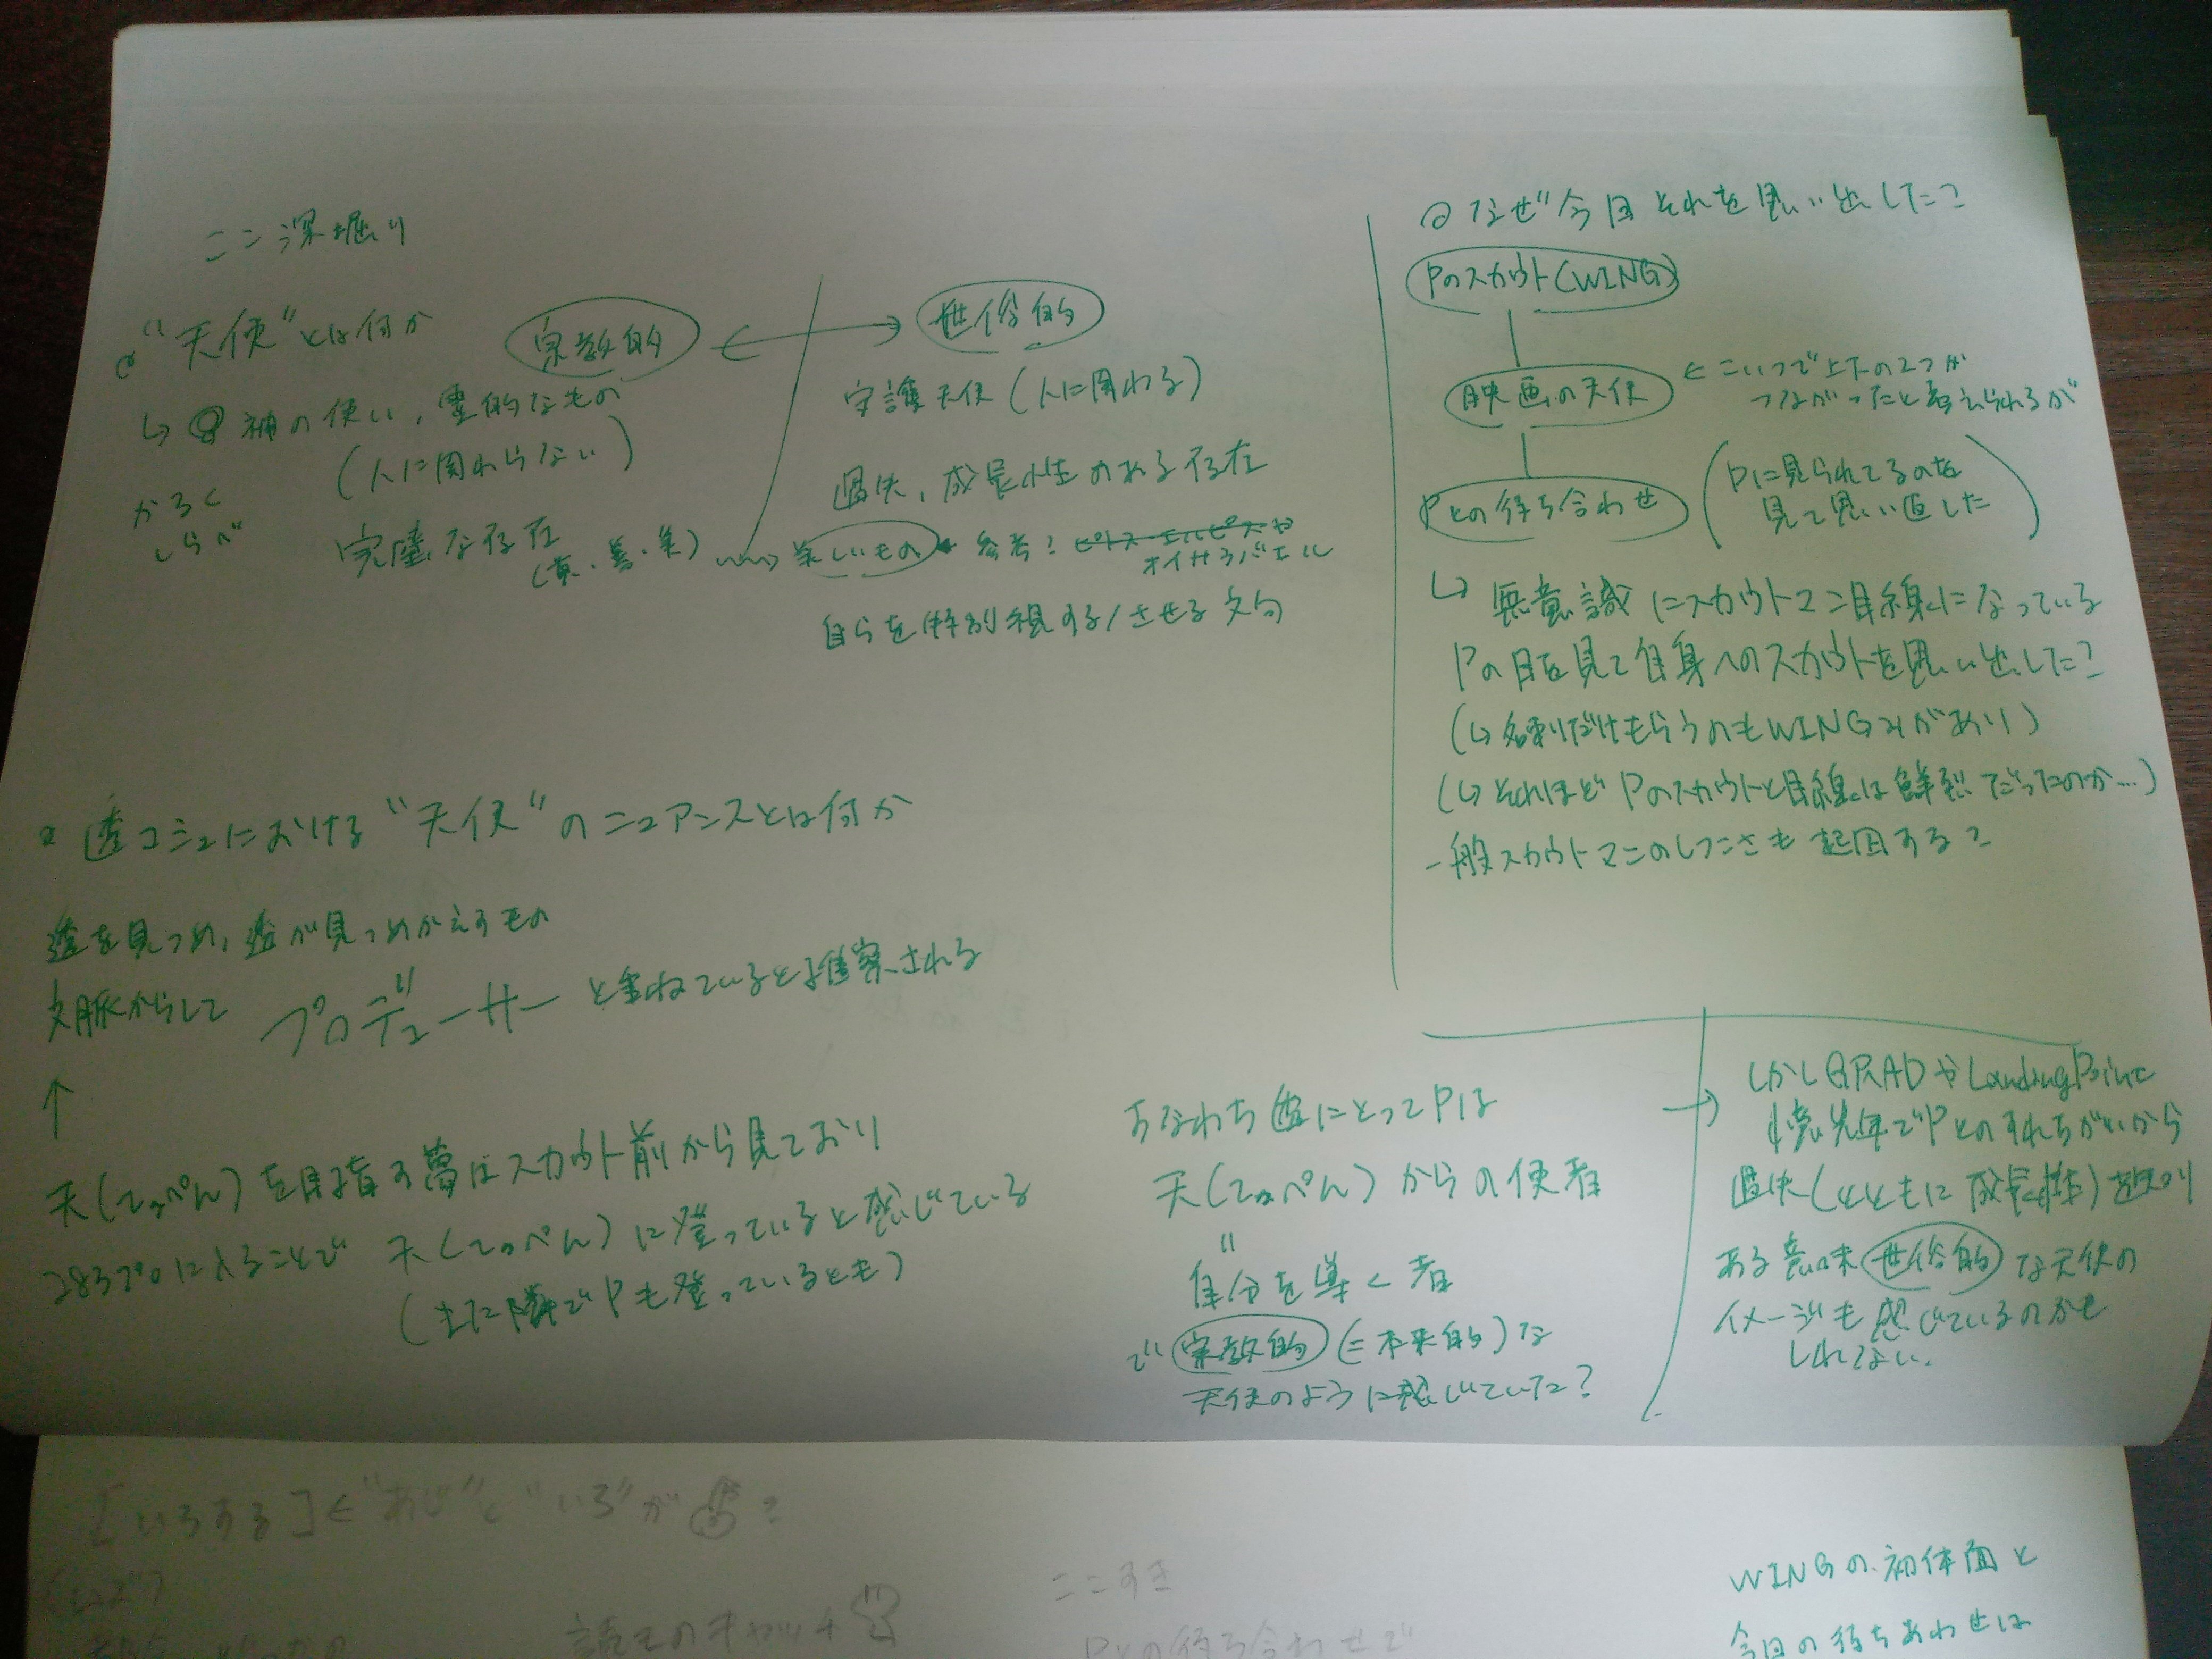 ここ深堀り
"天使"とは何か
↳ 神の使い, 霊的なもの
(人に関わらない)
かるく
しらべ
完璧な存在
(真・善・美)
宗教的 ⟷ 世俗的
守護天使 (人に関わる)
過失, 成長性のある存在
美しいもの 参考:
オイサラバエル
自らを特別視する/させる文句
透コミュにおける"天使"のニュアンスとは何か
透を見つめ, 透が見つめかえすもの
文脈からして プロデューサー と重ねていると推察される
↑
天(てっぺん)を目指す夢はスカウト前から見ており
283プロに入ることで 天(てっぺん)に登っていると感じている
(また隣でPも登っているとも)
すなわち透にとってPは
天(てっぺん)からの使者
=
自分を導く者
で 宗教的 (=本来的)な
天使のように感じていた?
→ しかしGRADやLandingPoint
憶光年でPとのすれちがいから
過失(とともに成長性)を知り
ある意味 世俗的 な天使の
イメージも感じているのかも
しれない.
なぜ今日それを思い出した?
Pのスカウト(WING)
映画の天使 ← こいつで上下の2つが
つながったと考えられるが
Pとの待ち合わせ (Pに見られてるのを
見て思い直した)
↳ 無意識にスカウトマン目線になっている
Pの目を見て自身へのスカウトを思い出した?
(↳ 名刺だけもらうのもWINGみがあり)
(↳ それほどPのスカウトと目線は鮮烈だったのか…)
一般スカウトマンのしつこさも起因する?
[いろする] ← "あじ"と"いろ"が ?
読モのキャッチ
ここすき
Pとの待ち合わせで
WINGの初体面と
今日の待ちあわせは